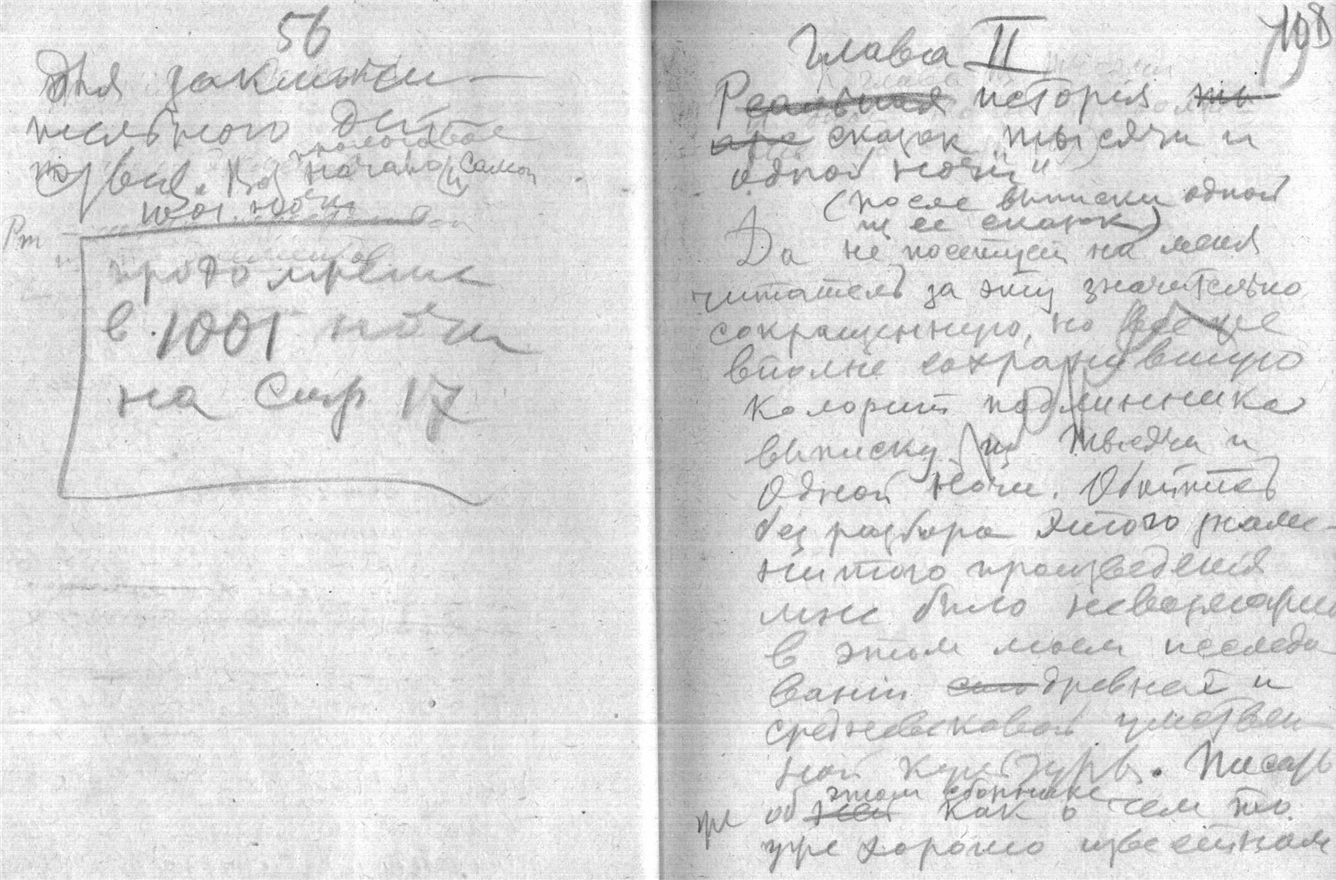 56
Для заключи-
тельного дейст
вия. Из начала самой
1001 ночи
продолжение
в 1001 ночи
на Стр 17
198
Глава II
Реальная история
сказок тысячи и
одной ночи"
(после выписки одной
из ее сказок)
Да не посетует на меня
читатель за эту значительно
сокращенную, но все же
вполне сохранившую
колорит подлинника
выписку из Тысячи и
Одной Ночи. Обойтись
без разбора этого знаме-
нитого произведения
мне было невозможно
в этом моем исследо-
вании древней и
средневековой умствен-
ной культуры. Писать
же об этом сборнике как о чем то
уже хорошо известном